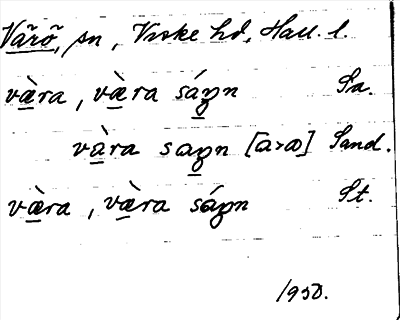 Värö, sn, Viske hd, Hall. l.
væ̀ra, væ̀ra sáꞃn Sa.
vàra saꞃn [a>æ] Sand.
væ̀ra, væ̀ra sáꞃn St.
1950.